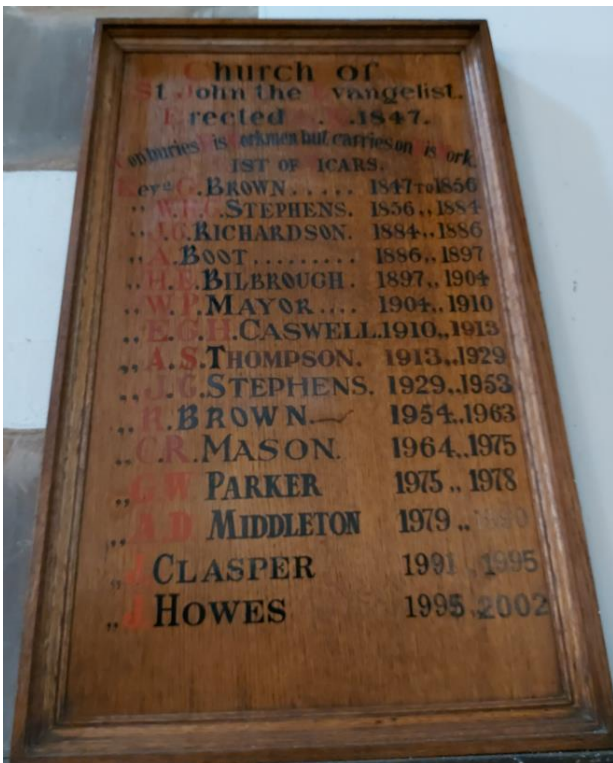 Church of
St John the Evangelist.
Erected A.D. 1847.
God buries His Workmen but carries on His Work.
LIST OF VICARS.
Revd G. BROWN ..... 1847 TO 1856
,, W.F.C. STEPHENS. 1856 ,, 1884
,, J.G. RICHARDSON. 1884 ,, 1886
,, A. BOOT ......... 1886 ,, 1897
,, H.E. BILBROUGH. 1897 ,, 1904
,, W.P. MAYOR .... 1904 ,, 1910
,, E.G.H. CASWELL. 1910 ,, 1913
,, A.S. THOMPSON. 1913 ,, 1929
,, J.G. STEPHENS. 1929 ,, 1953
,, H. BROWN 1954 ,, 1963
,, C.R. MASON. 1964 ,, 1975
,, G W PARKER 1975 ,, 1978
,, A D MIDDLETON 1979 ,, 1990
,, J CLASPER 1991 ,, 1995
,, J HOWES 1995 ,, 2002